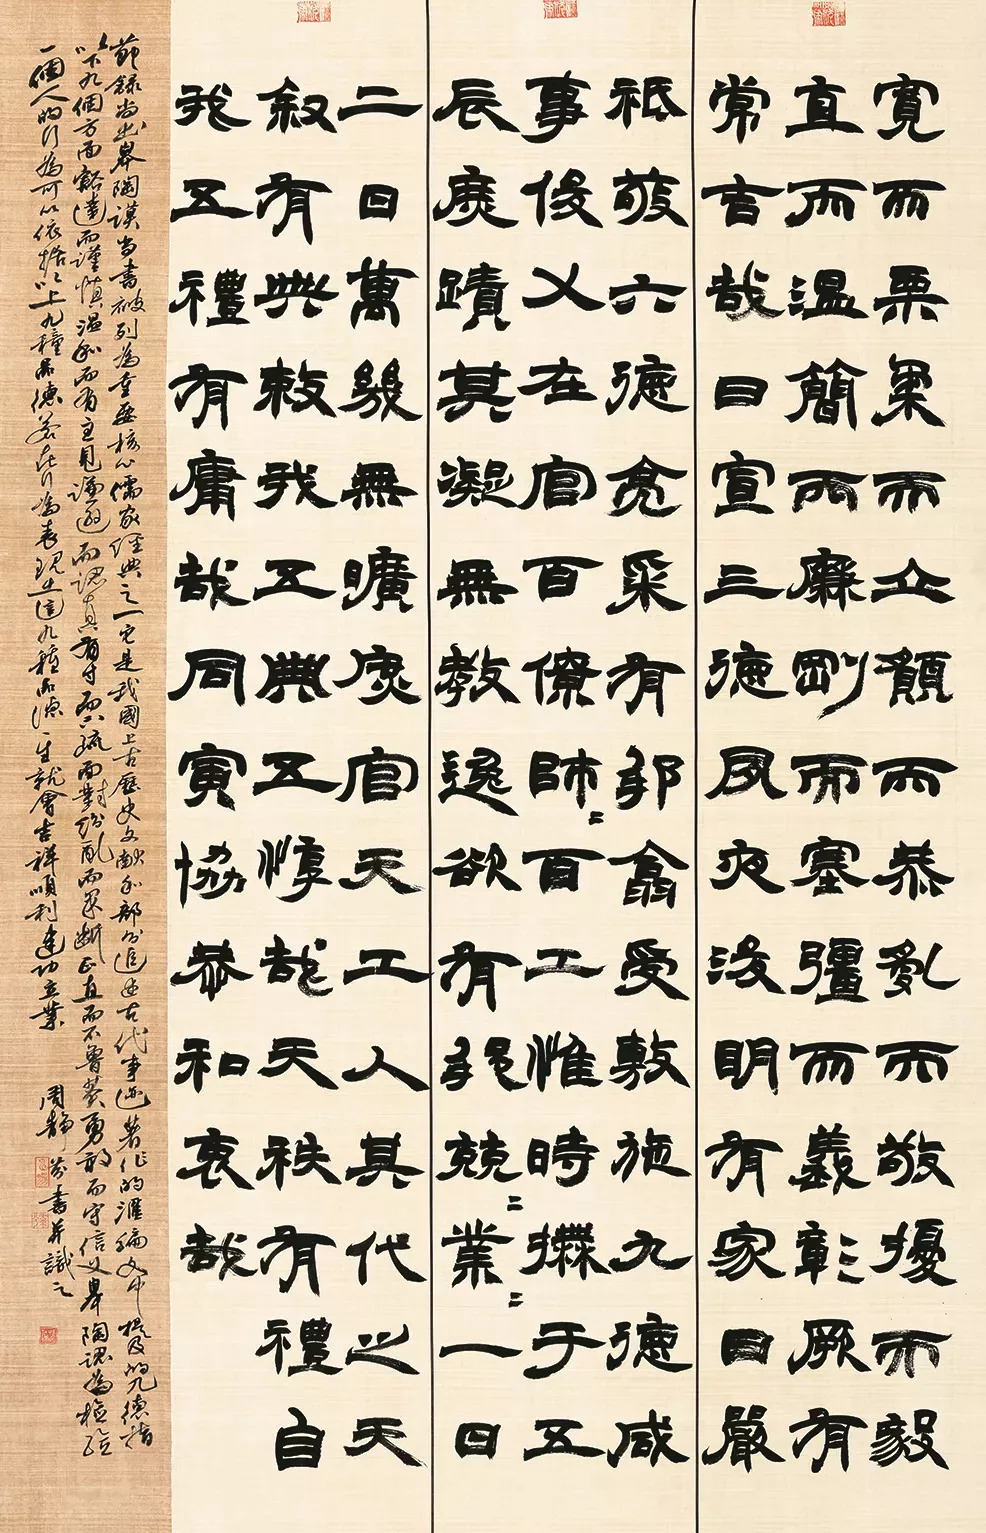 寬而栗柔而立願而恭亂而敬擾而毅
直而溫簡而廉剛而塞彊而義彰厥有
常吉哉日宣三德夙夜浚明有家日嚴
祗敬六德亮采有邦翕受敷施九德咸
事俊乂在官百僚師〻百工惟時撫于五
辰庶蹟其凝無教逸欲有邦兢〻業〻一日
二日萬幾無曠庶官天工人其代之天
敘有典敕我五典五惇哉天秩有禮自
我五禮有庸哉同寅協恭和衷哉
節錄尚書皋陶謨尚書被列為重要核心儒家經典之一它是我國上古歷史文獻和部分追述古代事迹著作的滙編文中提及的九德指
以下九個方面豁達而謹慎溫和而有主見謙遜而認真有才而不疏面對紛亂而果斷正直而不魯莽勇敢而守信義皋陶認為檢驗
一個人的行為可以依据以上九種品德若在行為表現出這九種品德一生就會吉祥順利建功立業 周靜芬書并識之